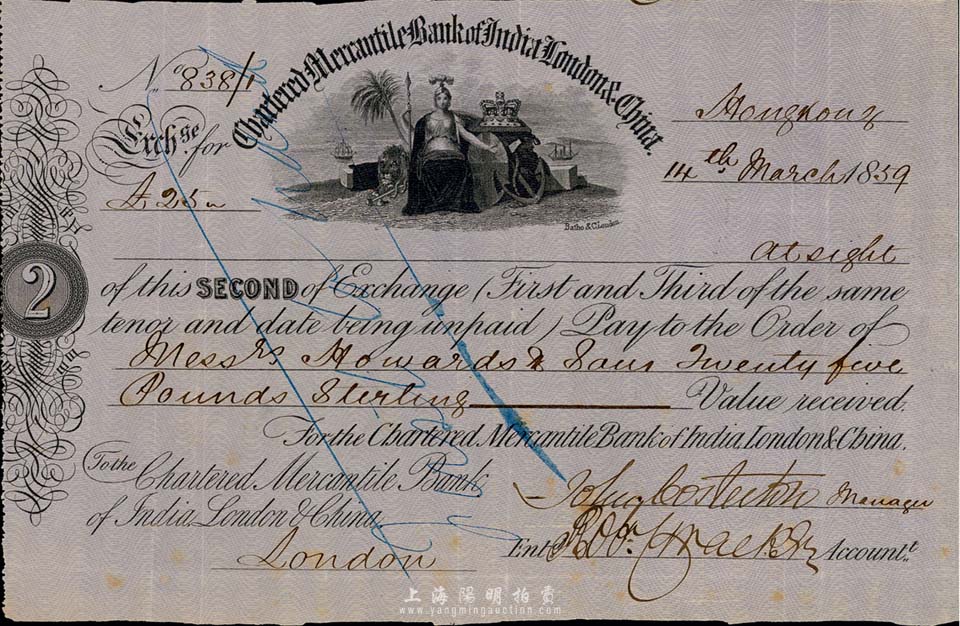 Chartered Mercantile Bank of India London & China.
No. 838/1
Hongkong
Exchge for
14th March 1859
£ 25
Batho & Co London
At sight
2
of this SECOND of Exchange (First and Third of the same
tenor and date being unpaid) Pay to the Order of
Messrs Howards & Sons Twenty five
Pounds Sterling Value received.
For the Chartered Mercantile Bank of India, London & China.
To the Chartered Mercantile Bank
of India London & China
John Costerton Manager
London
Entd Accountt
上海陽明拍賣
www.yangmingauction.com